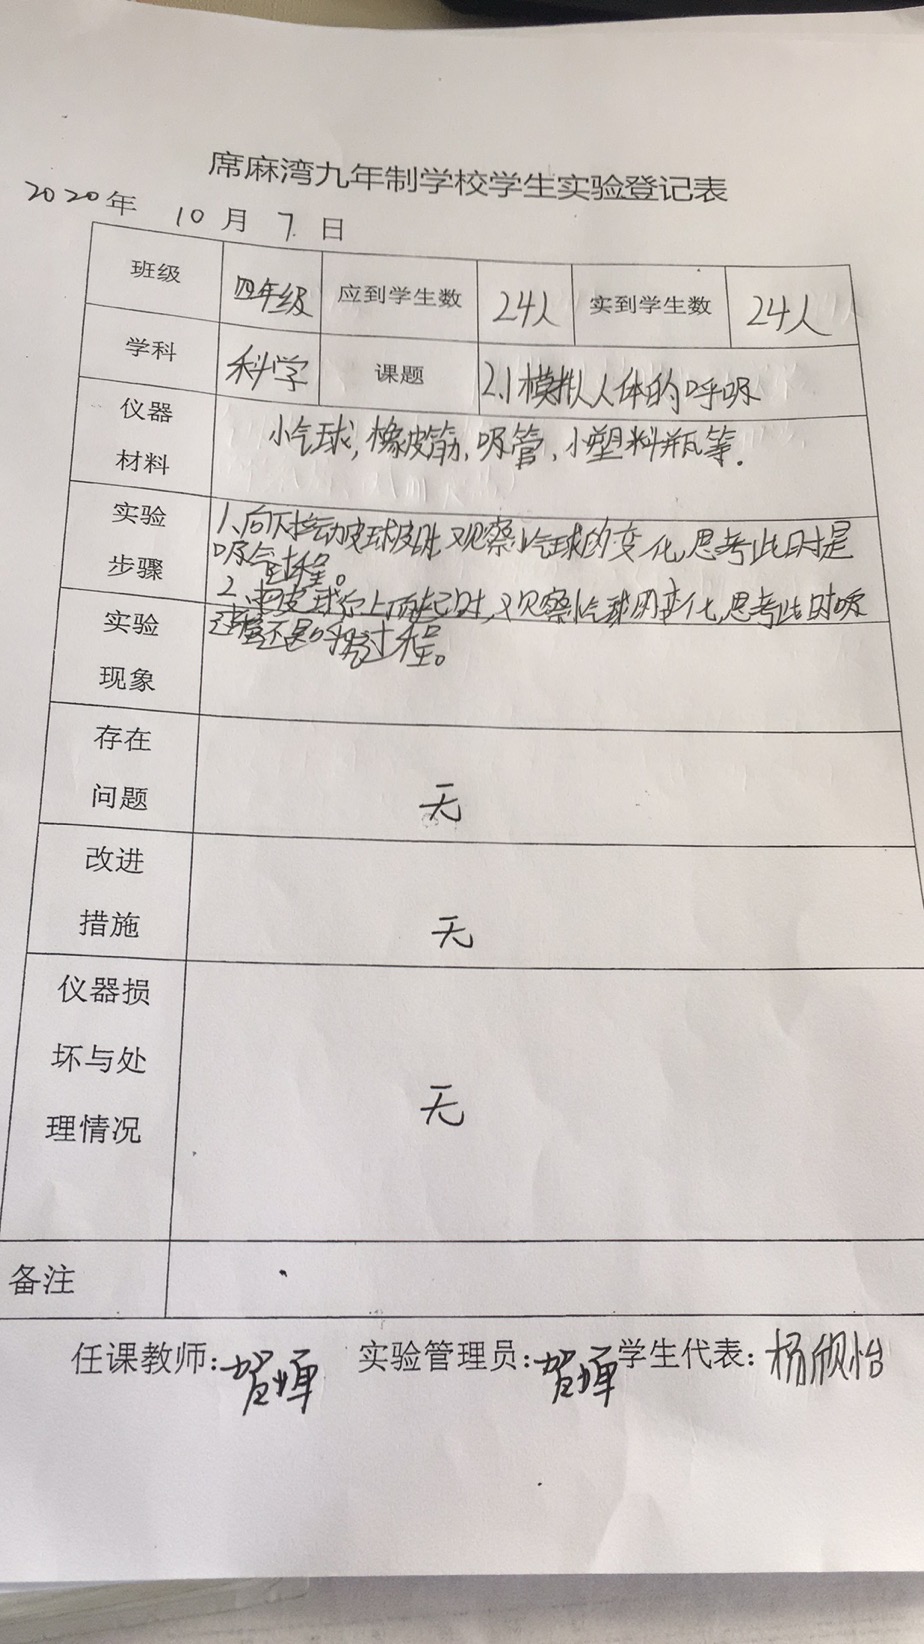 席麻湾九年制学校学生实验登记表
2020年 10月 7日
班级 四年级 应到学生数 24人 实到学生数 24人
学科 科学 课题 2.1模拟人体的呼吸
仪器
材料
小气球,橡皮筋、吸管、小塑料瓶等.
实验
步骤
1、向下拉动皮球皮时,观察小气球的变化,思考此时是
吸气过程。
2、皮球向上时,观察小气球的变化,思考此时吸
还是呼过程。
实验
现象
存在
问题
无
改进
措施
无
仪器损
坏与处
理情况
无
备注
任课教师: 实验管理员: 学生代表: 杨欣怡